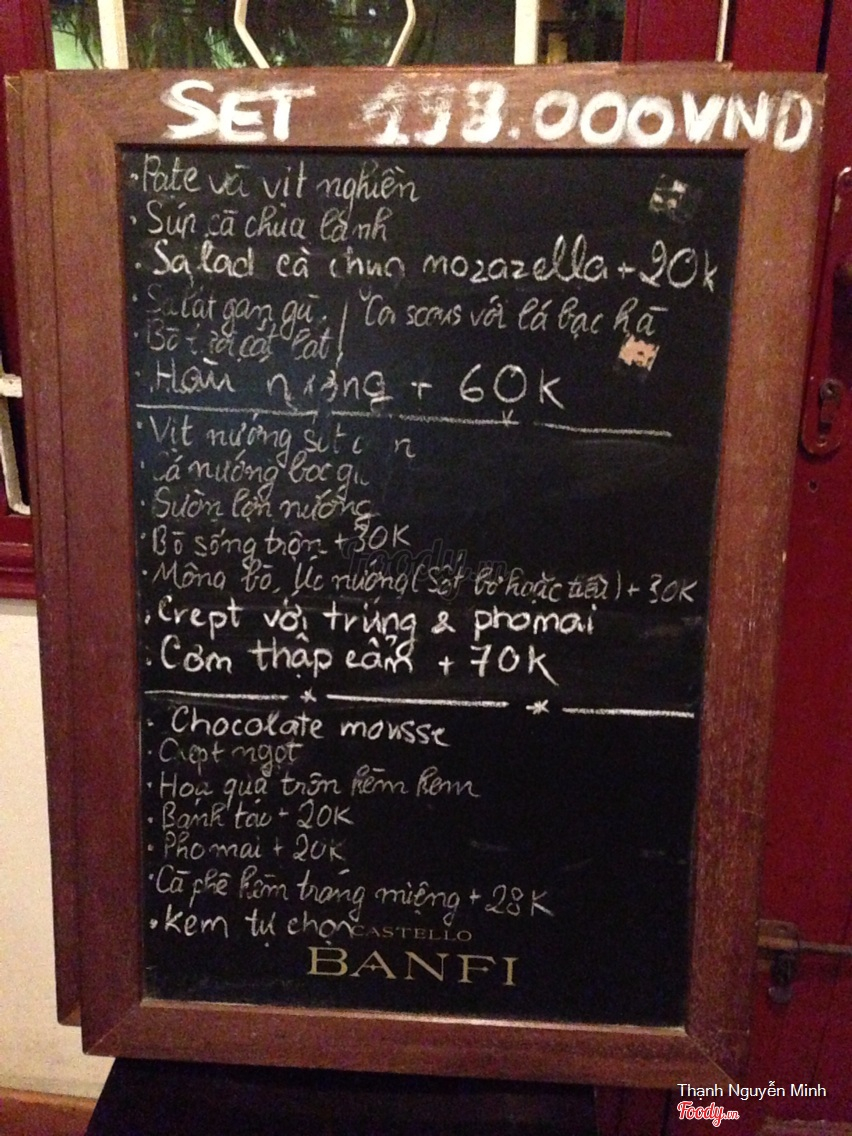 SET 198.000VND
• Pate và vịt nghiền
• Súp cà chua lạnh
• Salad cà chua mozazella + 20k
• Salát gan gà,
với lá bạc hà
• Bò
cắt lát
• Hàu nướng + 60K
• Vịt nướng sốt
• Cá nướng bọc
• Sườn lợn nướng
• Bò sống trộn + 30K
• Mông bò Úc nướng (sốt bơ hoặc tiêu) + 30K
• Crept với trứng & phomai
• Cơm thập cẩm + 70K
• Chocolate mousse
• Crept ngọt
• Hoa quả trộn kèm kem
• Bánh táo + 20K
• Phomai + 20K
• Cà phê kèm tráng miệng + 28K
• Kem tự chọn
CASTELLO
BANFI
Foody.vn
Thạnh Nguyễn Minh
Foody.vn